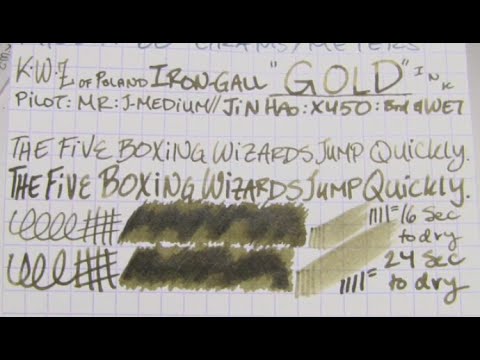 GRAMS/METERS
K.W.Z OF POLAND IRON-GALL "GOLD" INK
PILOT: MR: J-MEDIUM// JINHAO: X450: Brd & WET
THE FIVE BOXING WIZARDS JUMP QUICKLY.
THE FIVE BOXING WIZARDS JUMP QUICKLY.
= 16 Sec to dry
= 24 Sec to dry